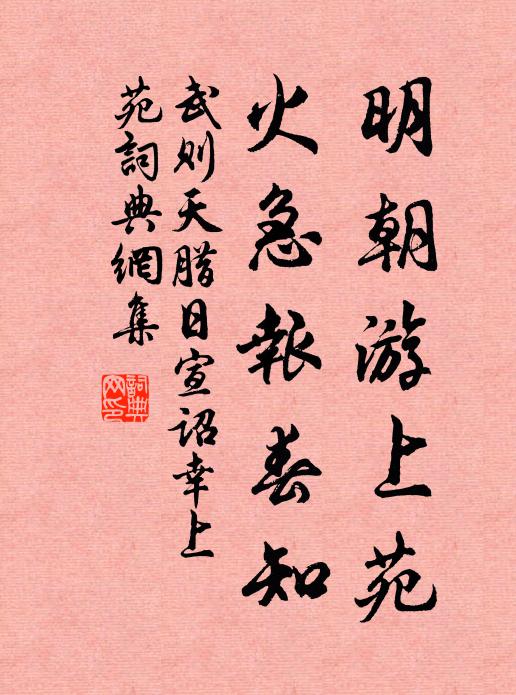 明朝游上苑
火急報春知
武则天腊日宣诏幸上
苑詞典網集
詞典
网印